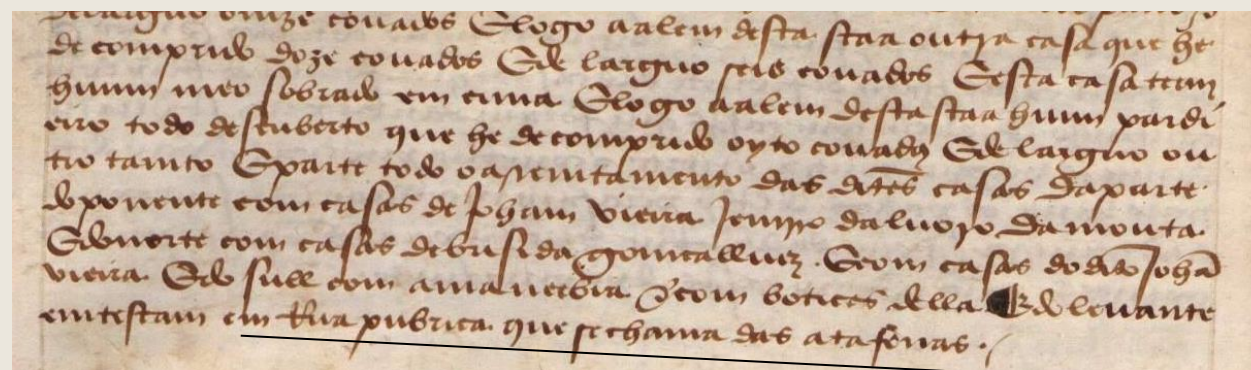 de larguo onze couados E logo aalem desta staa outra casa que he
de comprido doze couados E de larguo seis couados E esta casa tem
huum meo sobrado em cima E logo aalem desta staa huum pardi
eiro todo descuberto que he de comprido oyto couados E de larguo ou
tro tamto E parte todo o asemtamento das ditas casas da parte
do ponente com casas de Joham vieira Jemrro daluoro da mouta
E do norte com casas de brisida gomcalluez. E com casas do dito Johã
vieira E do sull com a mancebia E com boticas della E do leuante
emtestam em Rua pubrica que se chama das atafonas.